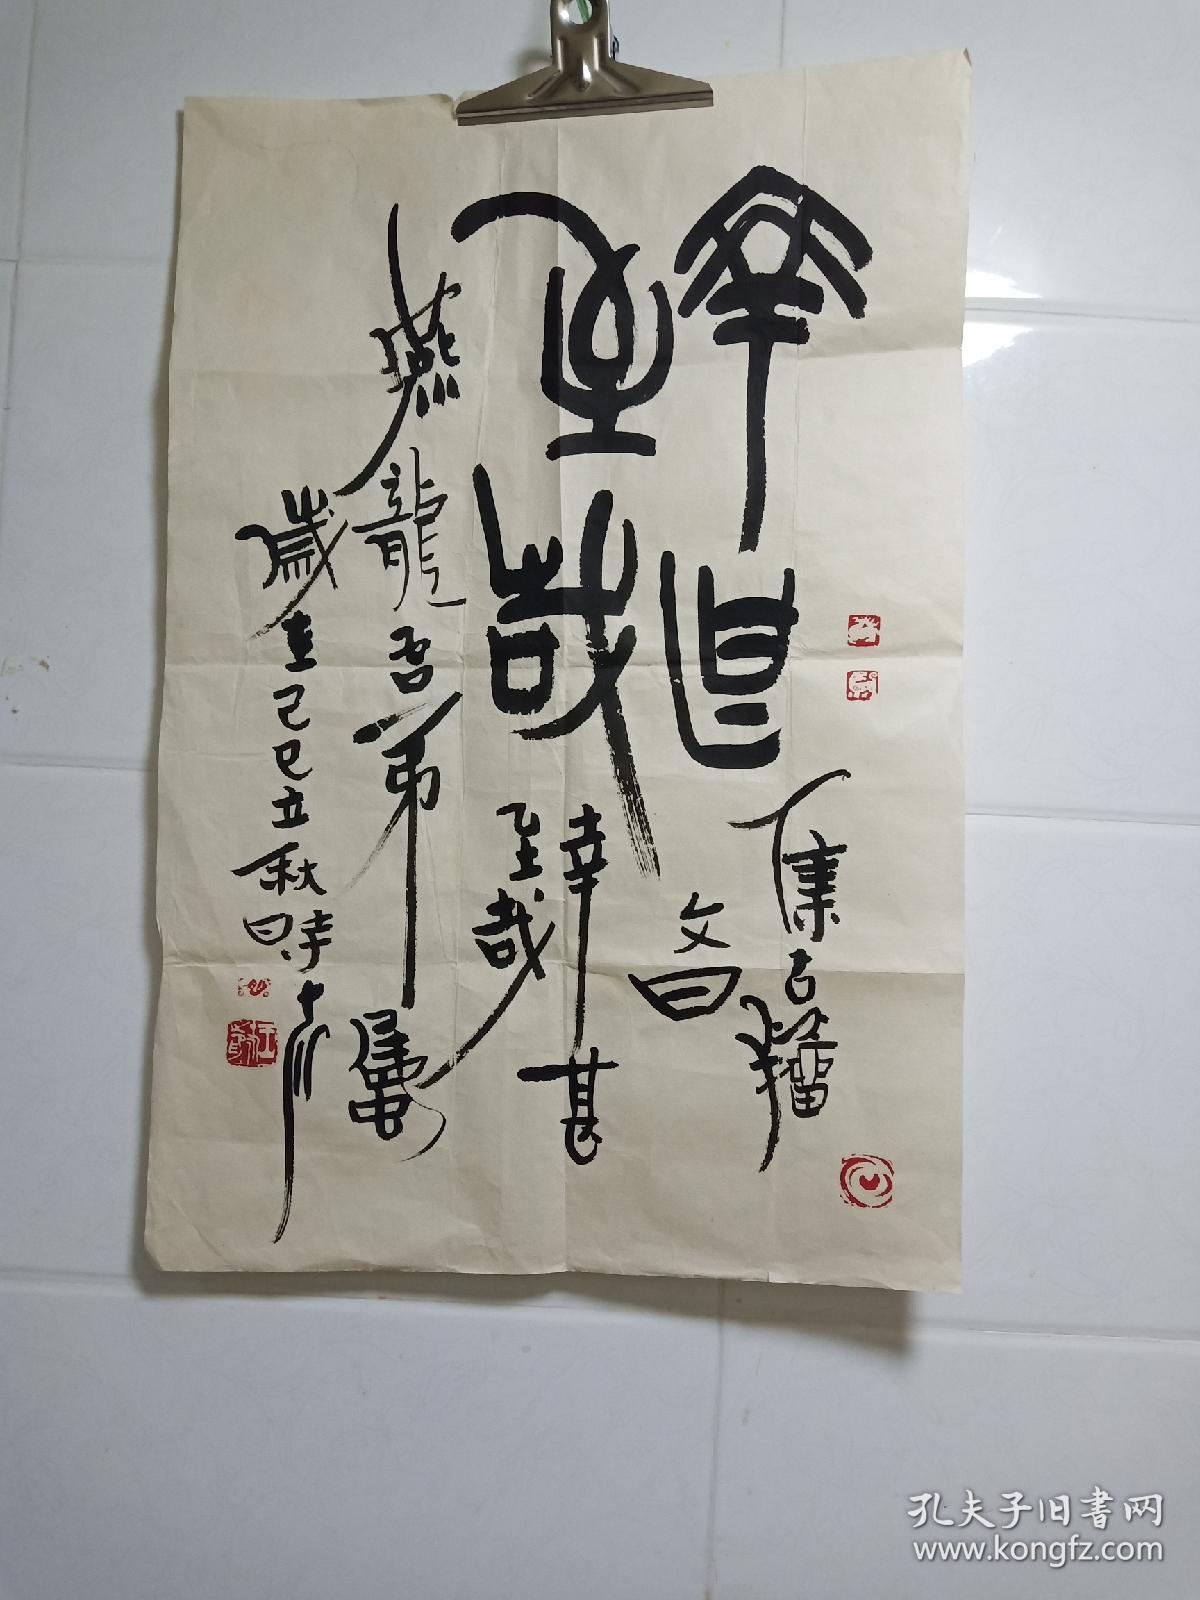 幸甚
集石籀
文曰
至哉
幸甚
至哉
燕龍吾弟屬
歲在己巳立秋時
孔夫子旧书网
www.kongfz.com